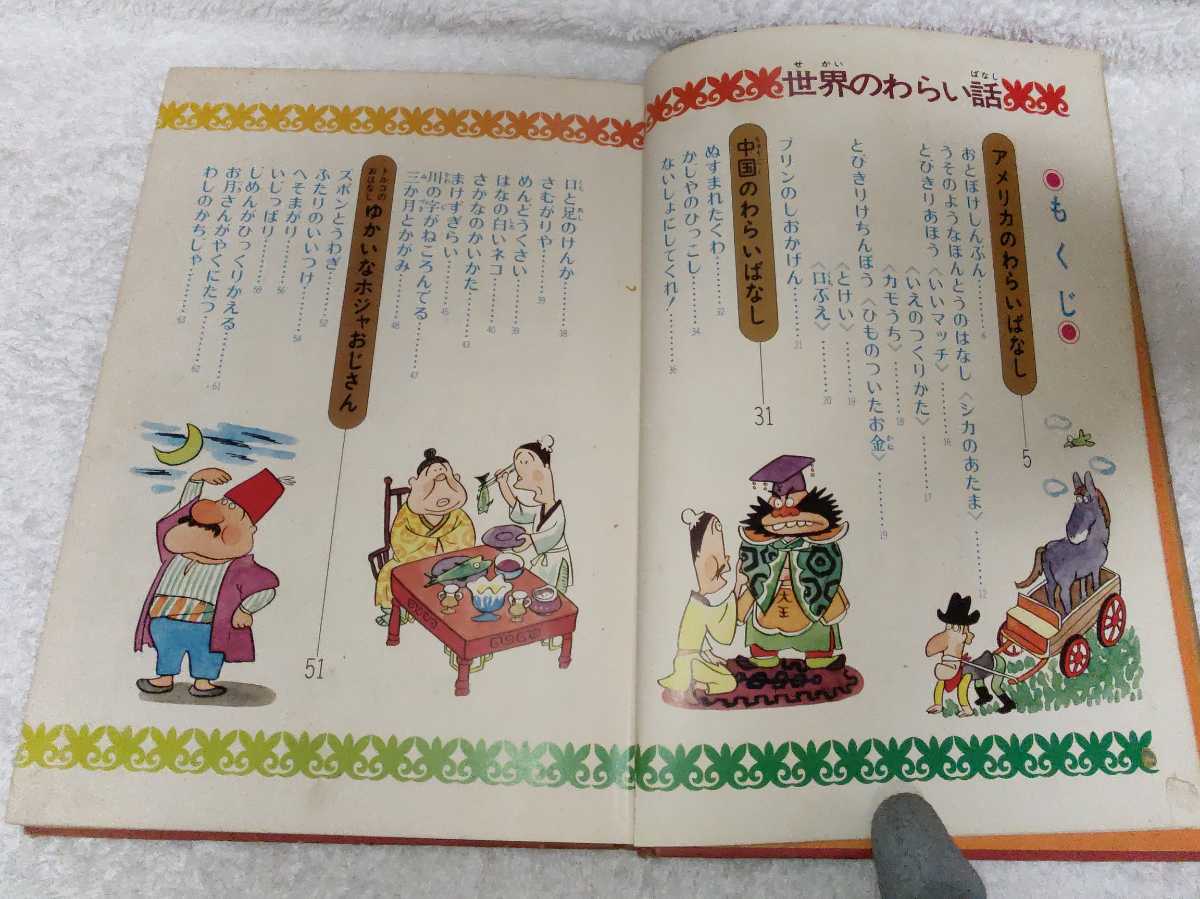 世界のわらい話
せかい
ばなし
もくじ
アメリカのわらいばなし
5
おとぼけしんぶん………6
うそのようなほんとうのはなし〈シカのあたま〉………12
とびきりあほう〈いいマッチ〉………16
〈いえのつくりかた〉………17
〈カモうち〉………18
とびきりけちんぼう〈ひものついたお金〉………19
かね
〈とけい〉………19
〈口ぶえ〉………20
くち
プリンのしおかげん………21
中国のわらいばなし
ちゅうごく
31
ぬすまれたくわ………32
かじやのひっこし………34
ないしょにしてくれ!………36
口と足のけんか………38
くち あし
さむがりや………39
めんどうくさい………39
はなの白いネコ………40
しろ
さかなのかいかた………43
まけずぎらい………45
川の字がねころんでる………47
かわ じ
三か月とかがみ………48
み づき
トルコのおはなし
ゆかいなホジャおじさん
51
ズボンとうわぎ………52
ふたりのいいつけ………54
へそまがり………56
いじっぱり………59
じめんがひっくりかえる………61
お月さんがやくにたつ………62
わしのかちじゃ………63
大王